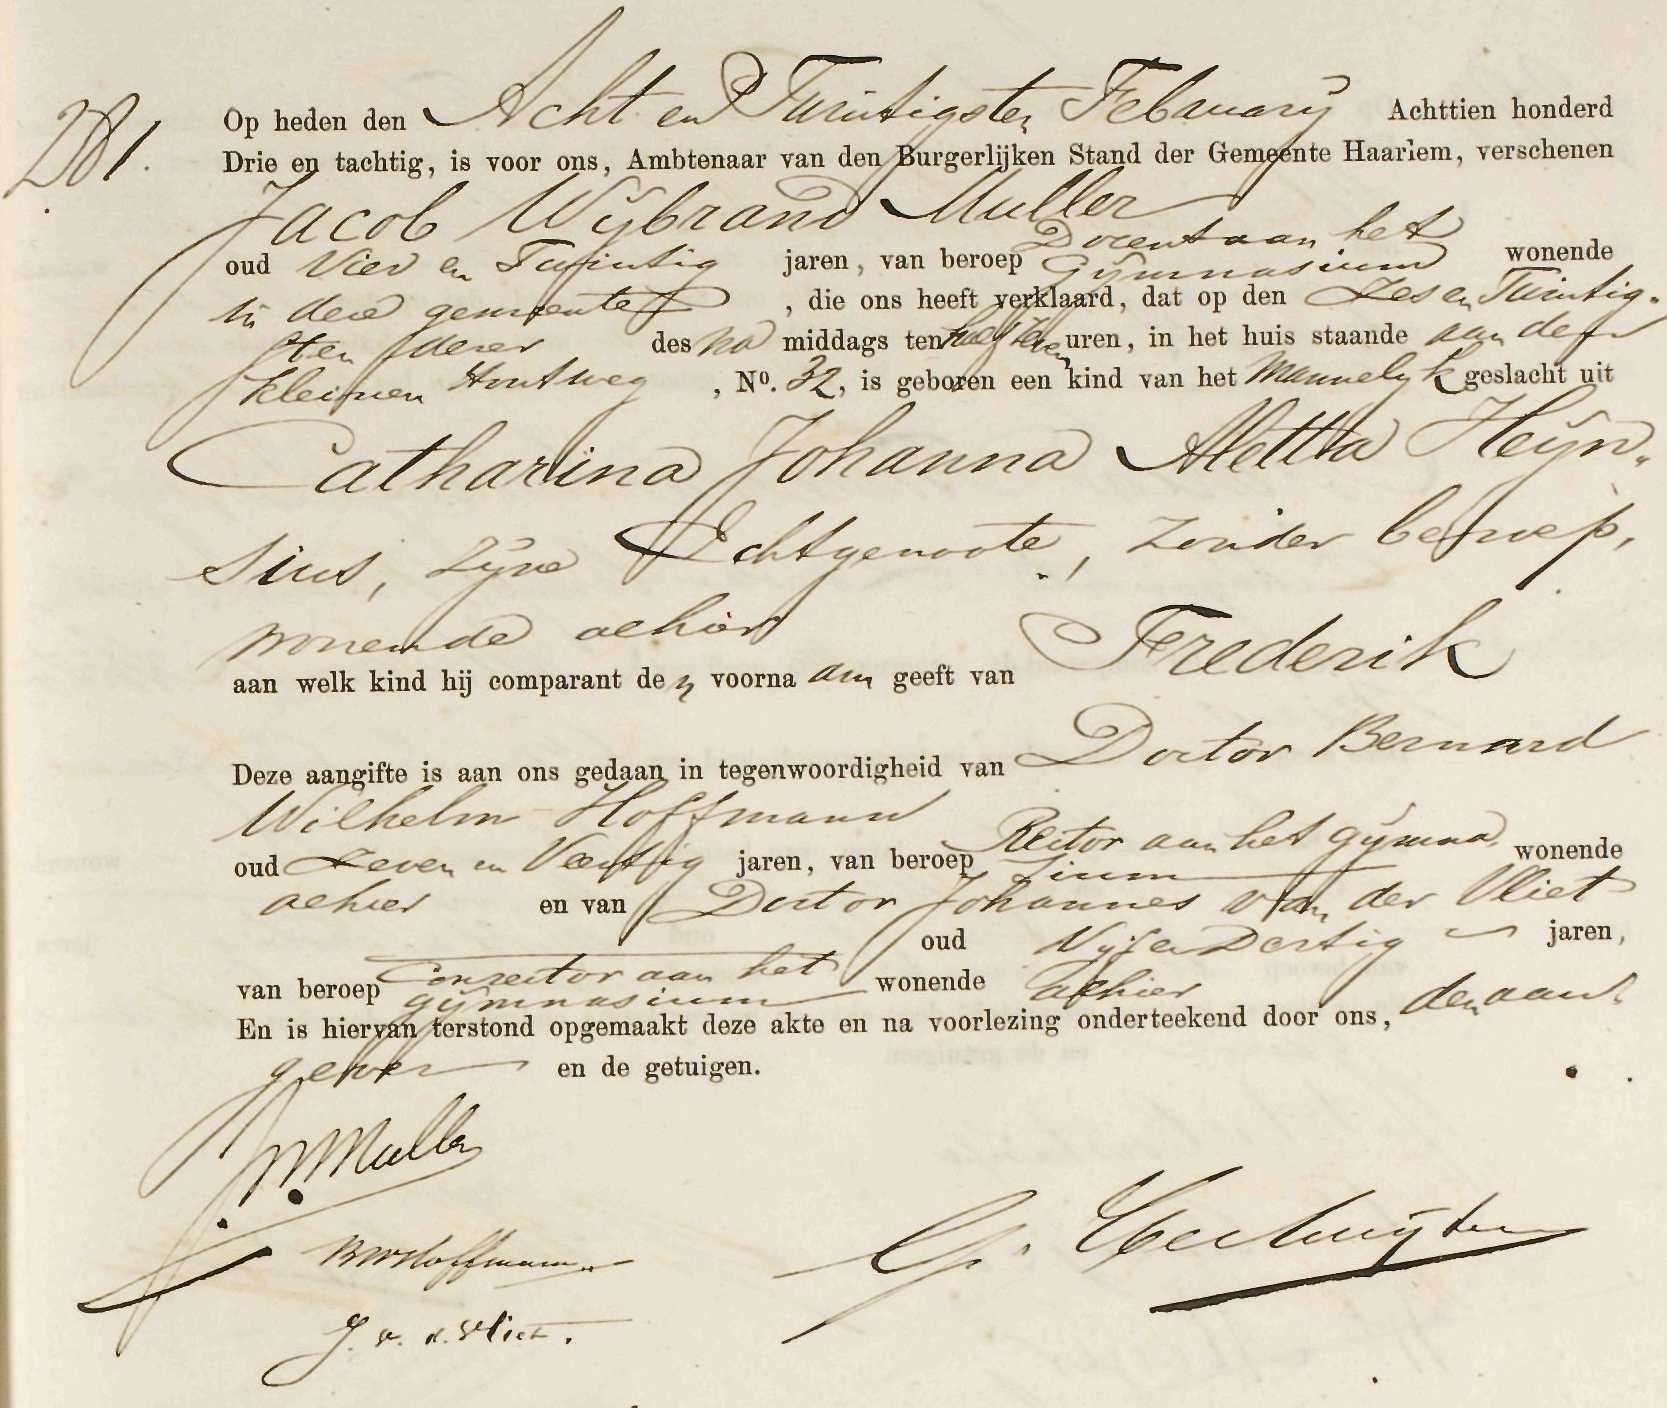 281.
Op heden den Acht en Twintigsten February Achttien honderd
Drie en tachtig, is voor ons, Ambtenaar van den Burgerlijken Stand der Gemeente Haarlem, verschenen
Jacob Wijbrand Muller
oud Vier en Twintig jaren, van beroep Docent aan het Gymnasium wonende
in deze gemeente, die ons heeft verklaard, dat op den Zes en Twintig-
sten dezer des na middags ten uren, in het huis staande aan den
kleinen Houtweg, No. 32, is geboren een kind van het Mannelijk geslacht uit
Catharina Johanna Aletta Heijn-
sius, zijne Echtgenoote, zonder beroep,
wonende alhier
aan welk kind hij comparant den voornaam geeft van Frederik
Deze aangifte is aan ons gedaan in tegenwoordigheid van Doctor Bernard
Wilhelm Hoffmann
oud Zeven en Veertig jaren, van beroep Rector aan het gymnasium wonende
alhier en van Doctor Johannes van der Vliet
oud Vijf en Dertig jaren,
van beroep Conrector aan het gymnasium wonende alhier
En is hiervan terstond opgemaakt deze akte en na voorlezing onderteekend door ons, den aan-
gever en de getuigen.
JWMuller
BWHoffmann
J. v. d. Vliet.